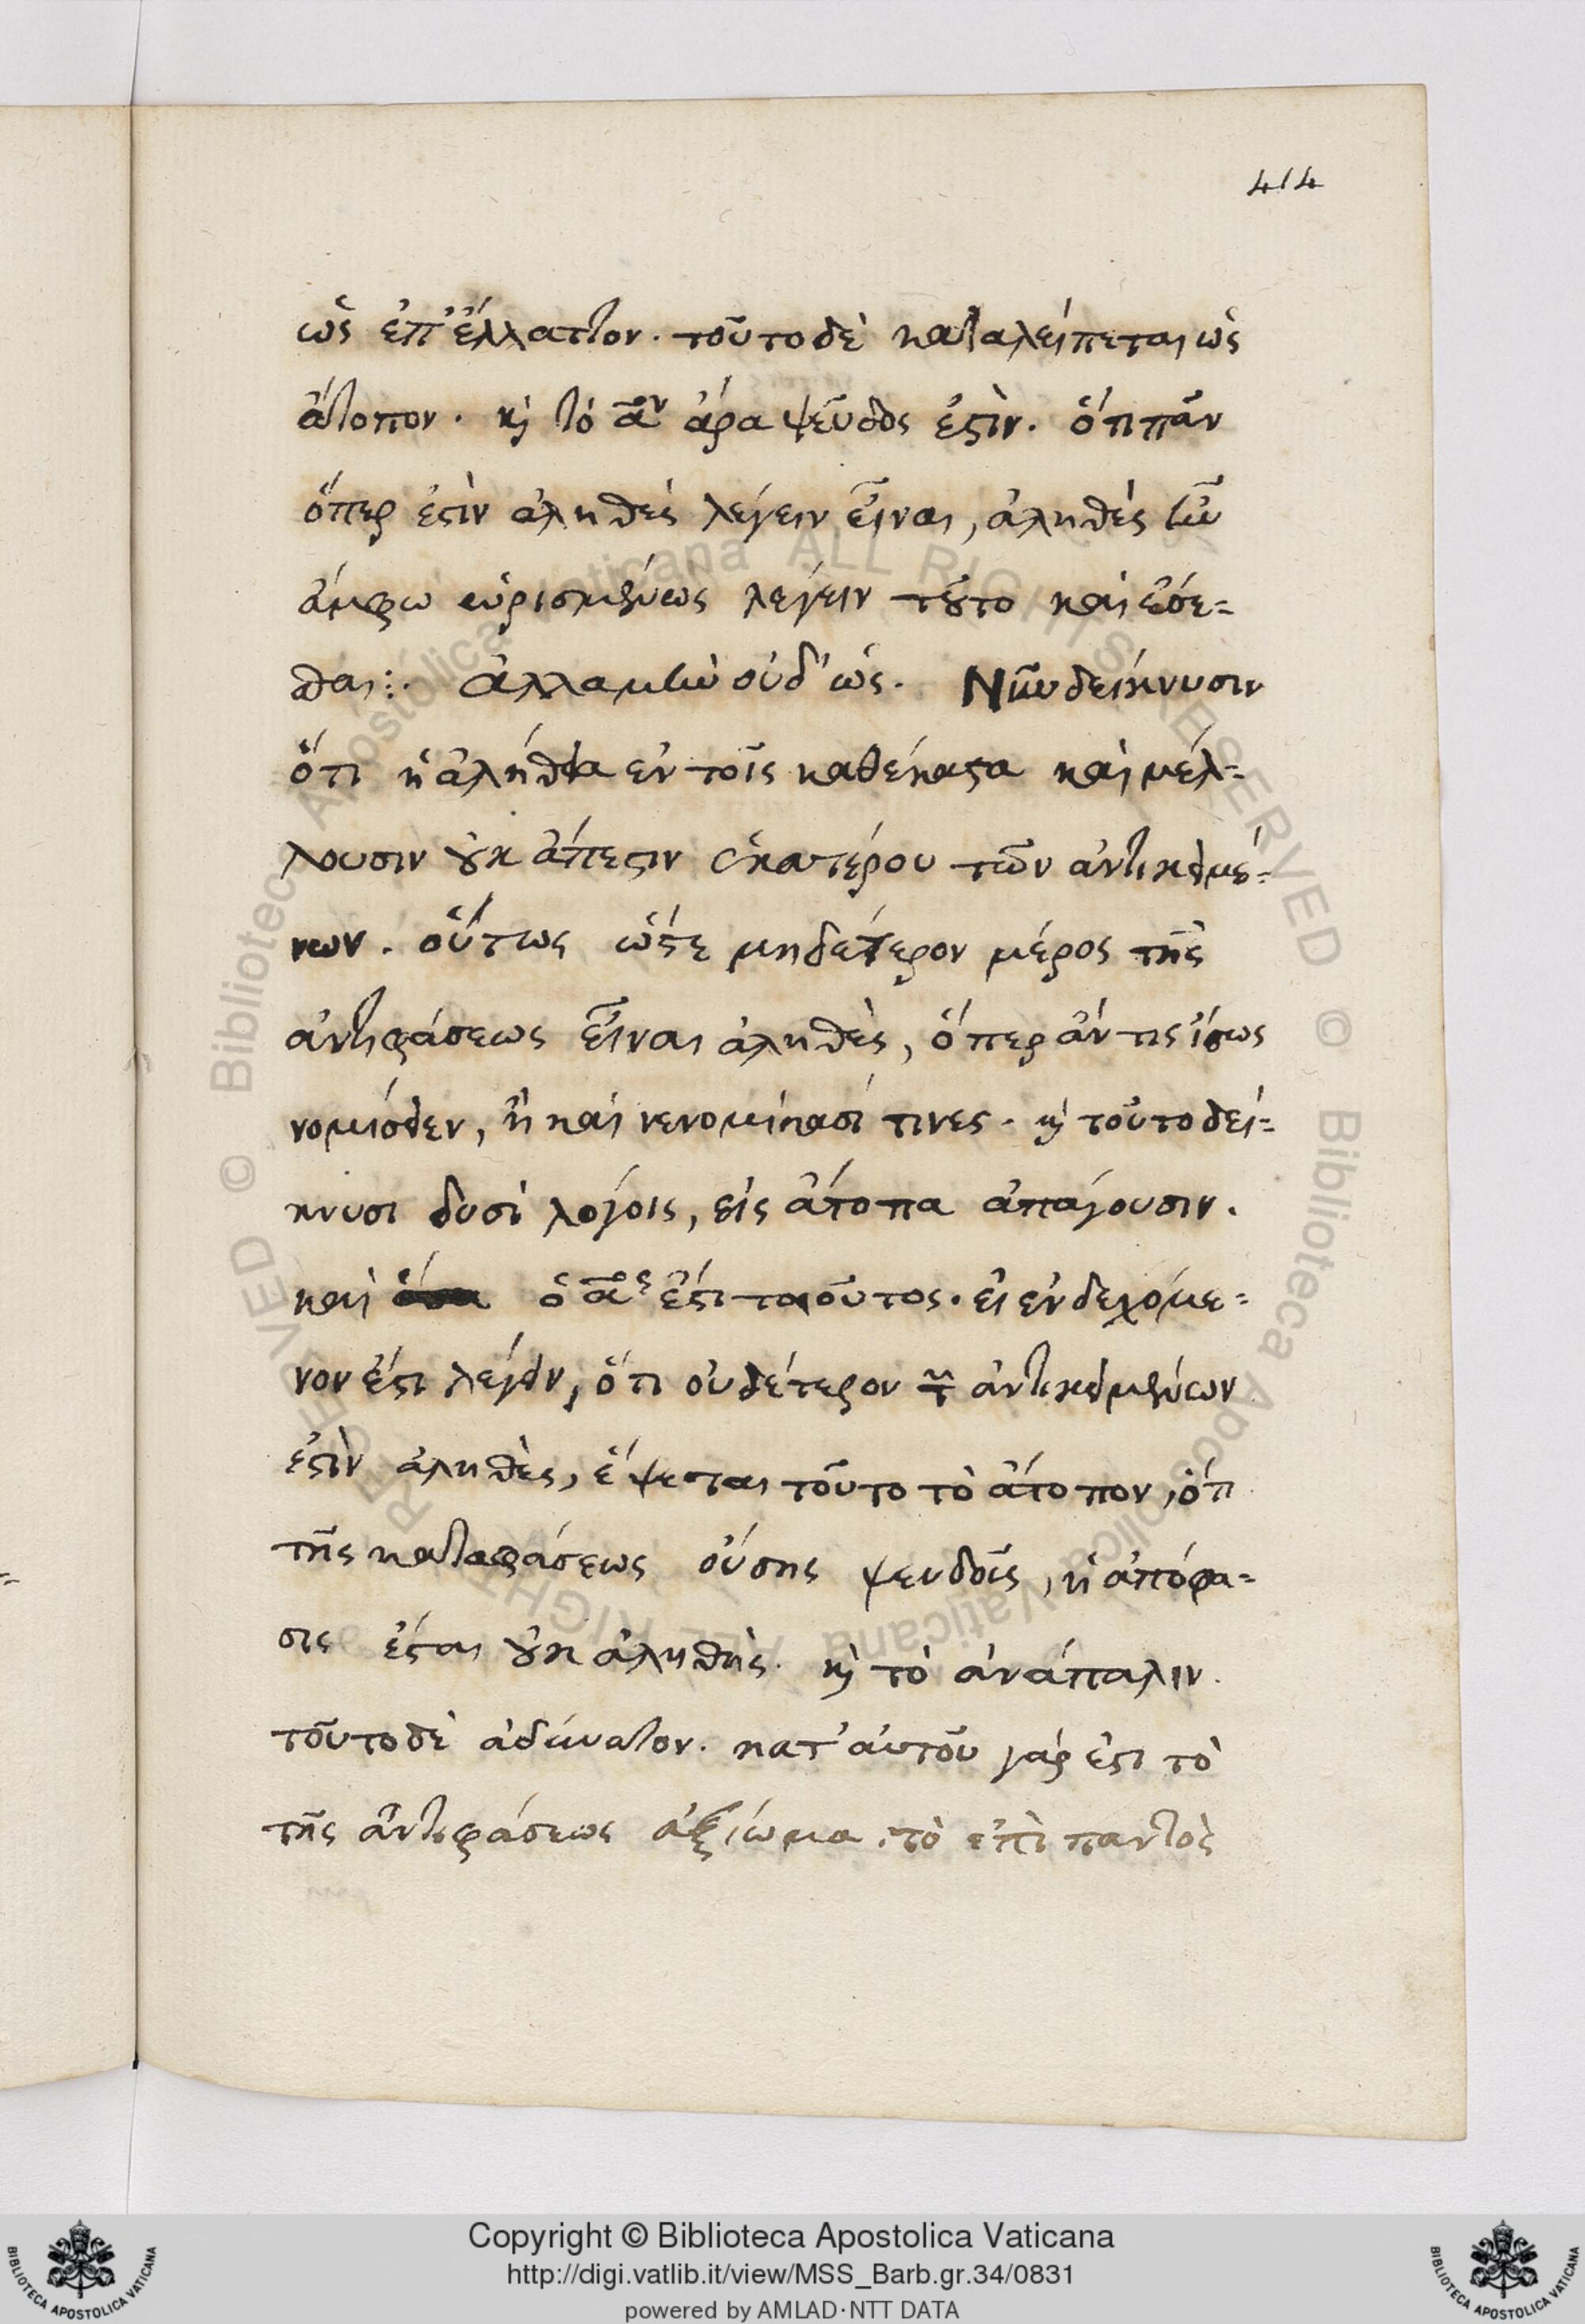 414
ὡς ἐπ' ἔλλαττον. τοῦτο δὲ καταλείπεται ὡς
ἄτοπον. κ̀ τὸ ᾶν ἄρα ψεῦδος ἐςὶν. ὅτι πᾶν
ὅπερ ἐςὶν ἀληθὲς λέγειν εἶναι, ἀληθὲς ἦν
ἄμφω εὑρισμένως λέγειν τȣ͂το καὶ ἔσε-
σθαι:. Ἀλλὰ μὴν οὐδ' ὡς. Νῦν δείκνυσιν
ὅτι ἡ ἀλήθεια ἐν τοῖς καθέκαςα καὶ μέλ-
λουσιν ȣ̓κ ἄπεςιν ἑκατέρου τῶν ἀντικειμέ-
νων. οὕτως ὥςε μηδέτερον μέρος τῆς
ἀντιφάσεως εἶναι ἀληθὲς, ὅπερ ἄν τις ἴσως
νομίσειεν, ἢ καὶ νενομίκασί τινες. κ̀ τοῦτο δεί-
κνυσι δυσὶ λόγοις, εἰς ἄτοπα ἀπάγουσιν.
καὶ ὁ ᾶος ἔςι τοιοῦτος. εἰ ἐνδεχόμε-
νον ἔςι λέγειν, ὅτι οὐδέτερον τ͂ ἀντικειμένων
ἐςὶν ἀληθὲς, ἕψεται τοῦτο τὸ ἄτοπον, ὅτι
τῆς καταφάσεως οὔσης ψευδοῦς, ἡ ἀπόφα-
σις ἔςαι ȣ̓κ ἀληθὴς. κ̀ τὸ ἀνάπαλιν.
τοῦτο δὲ ἀδύνατον. κατ' αὐτοῦ γάρ ἐςι τὸ
τῆς ἀντιφάσεως ἀξίωμα. τὸ ἐπὶ παντὸς
© Biblioteca Apostolica Vaticana ALL RIGHTS RESERVED © Biblioteca Apostolica Vaticana ALL RIGHTS RESERVED
Copyright © Biblioteca Apostolica Vaticana
http://digi.vatlib.it/view/MSS_Barb.gr.34/0831
powered by AMLAD·NTT DATA
BIBLIOTECA APOSTOLICA VATICANA
BIBLIOTECA APOSTOLICA VATICANA